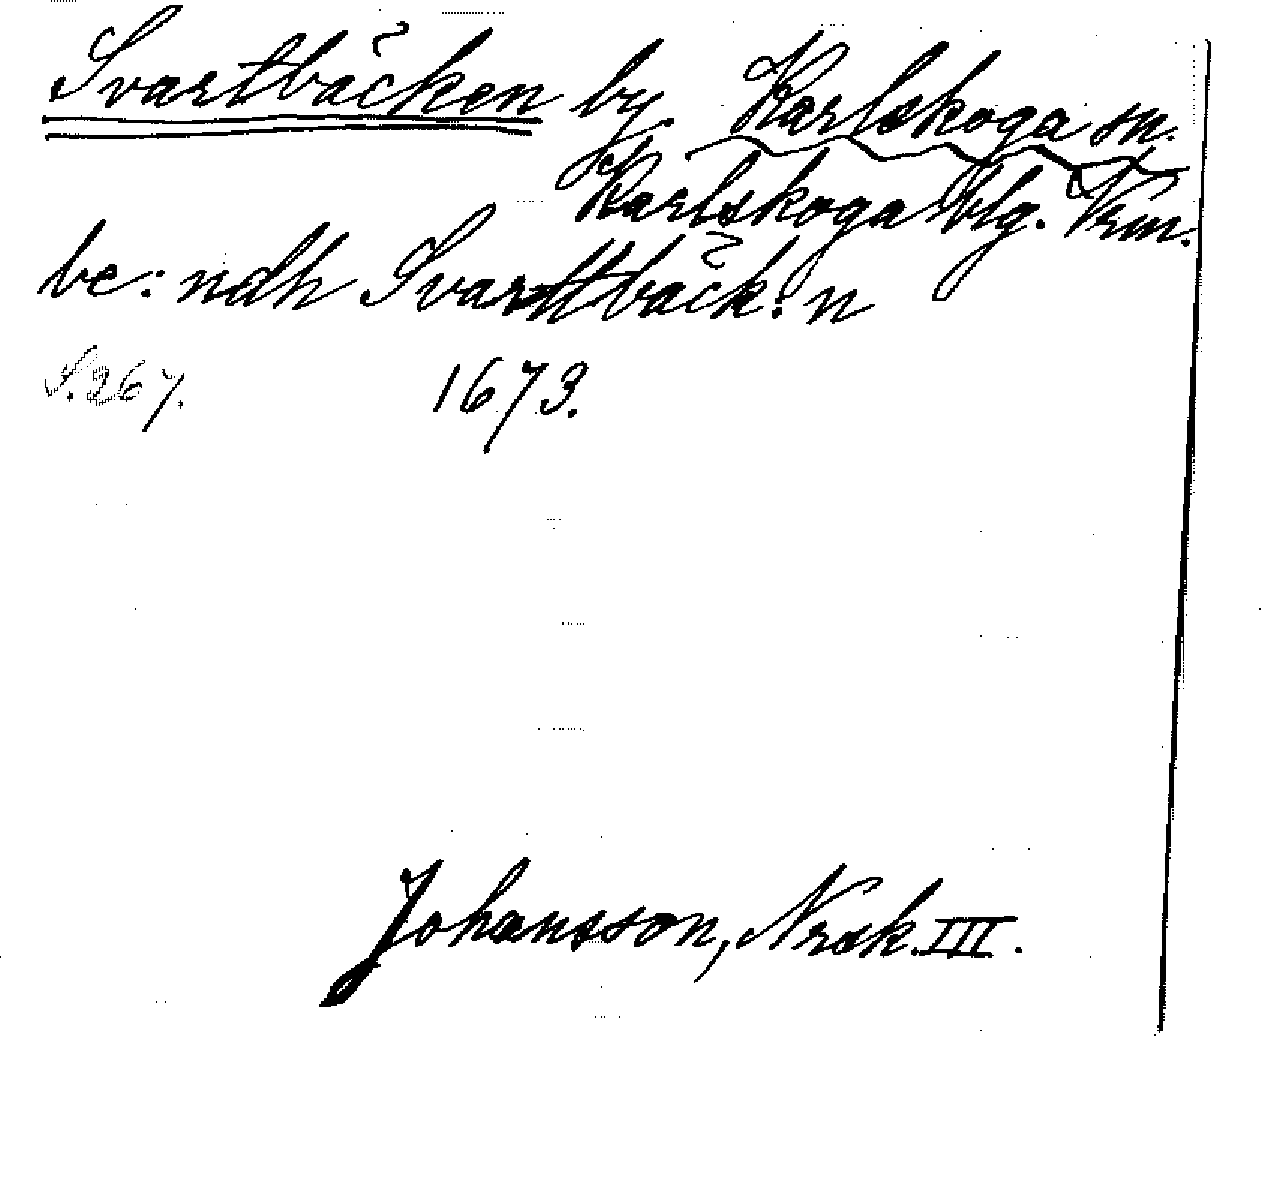 Svartbäcken by Karlskoga sn.
Karlskoga blg. Vrm.
be: ndh Svarttbäck: n
S. 267. 1673.
Johansson, Nrsk. III.